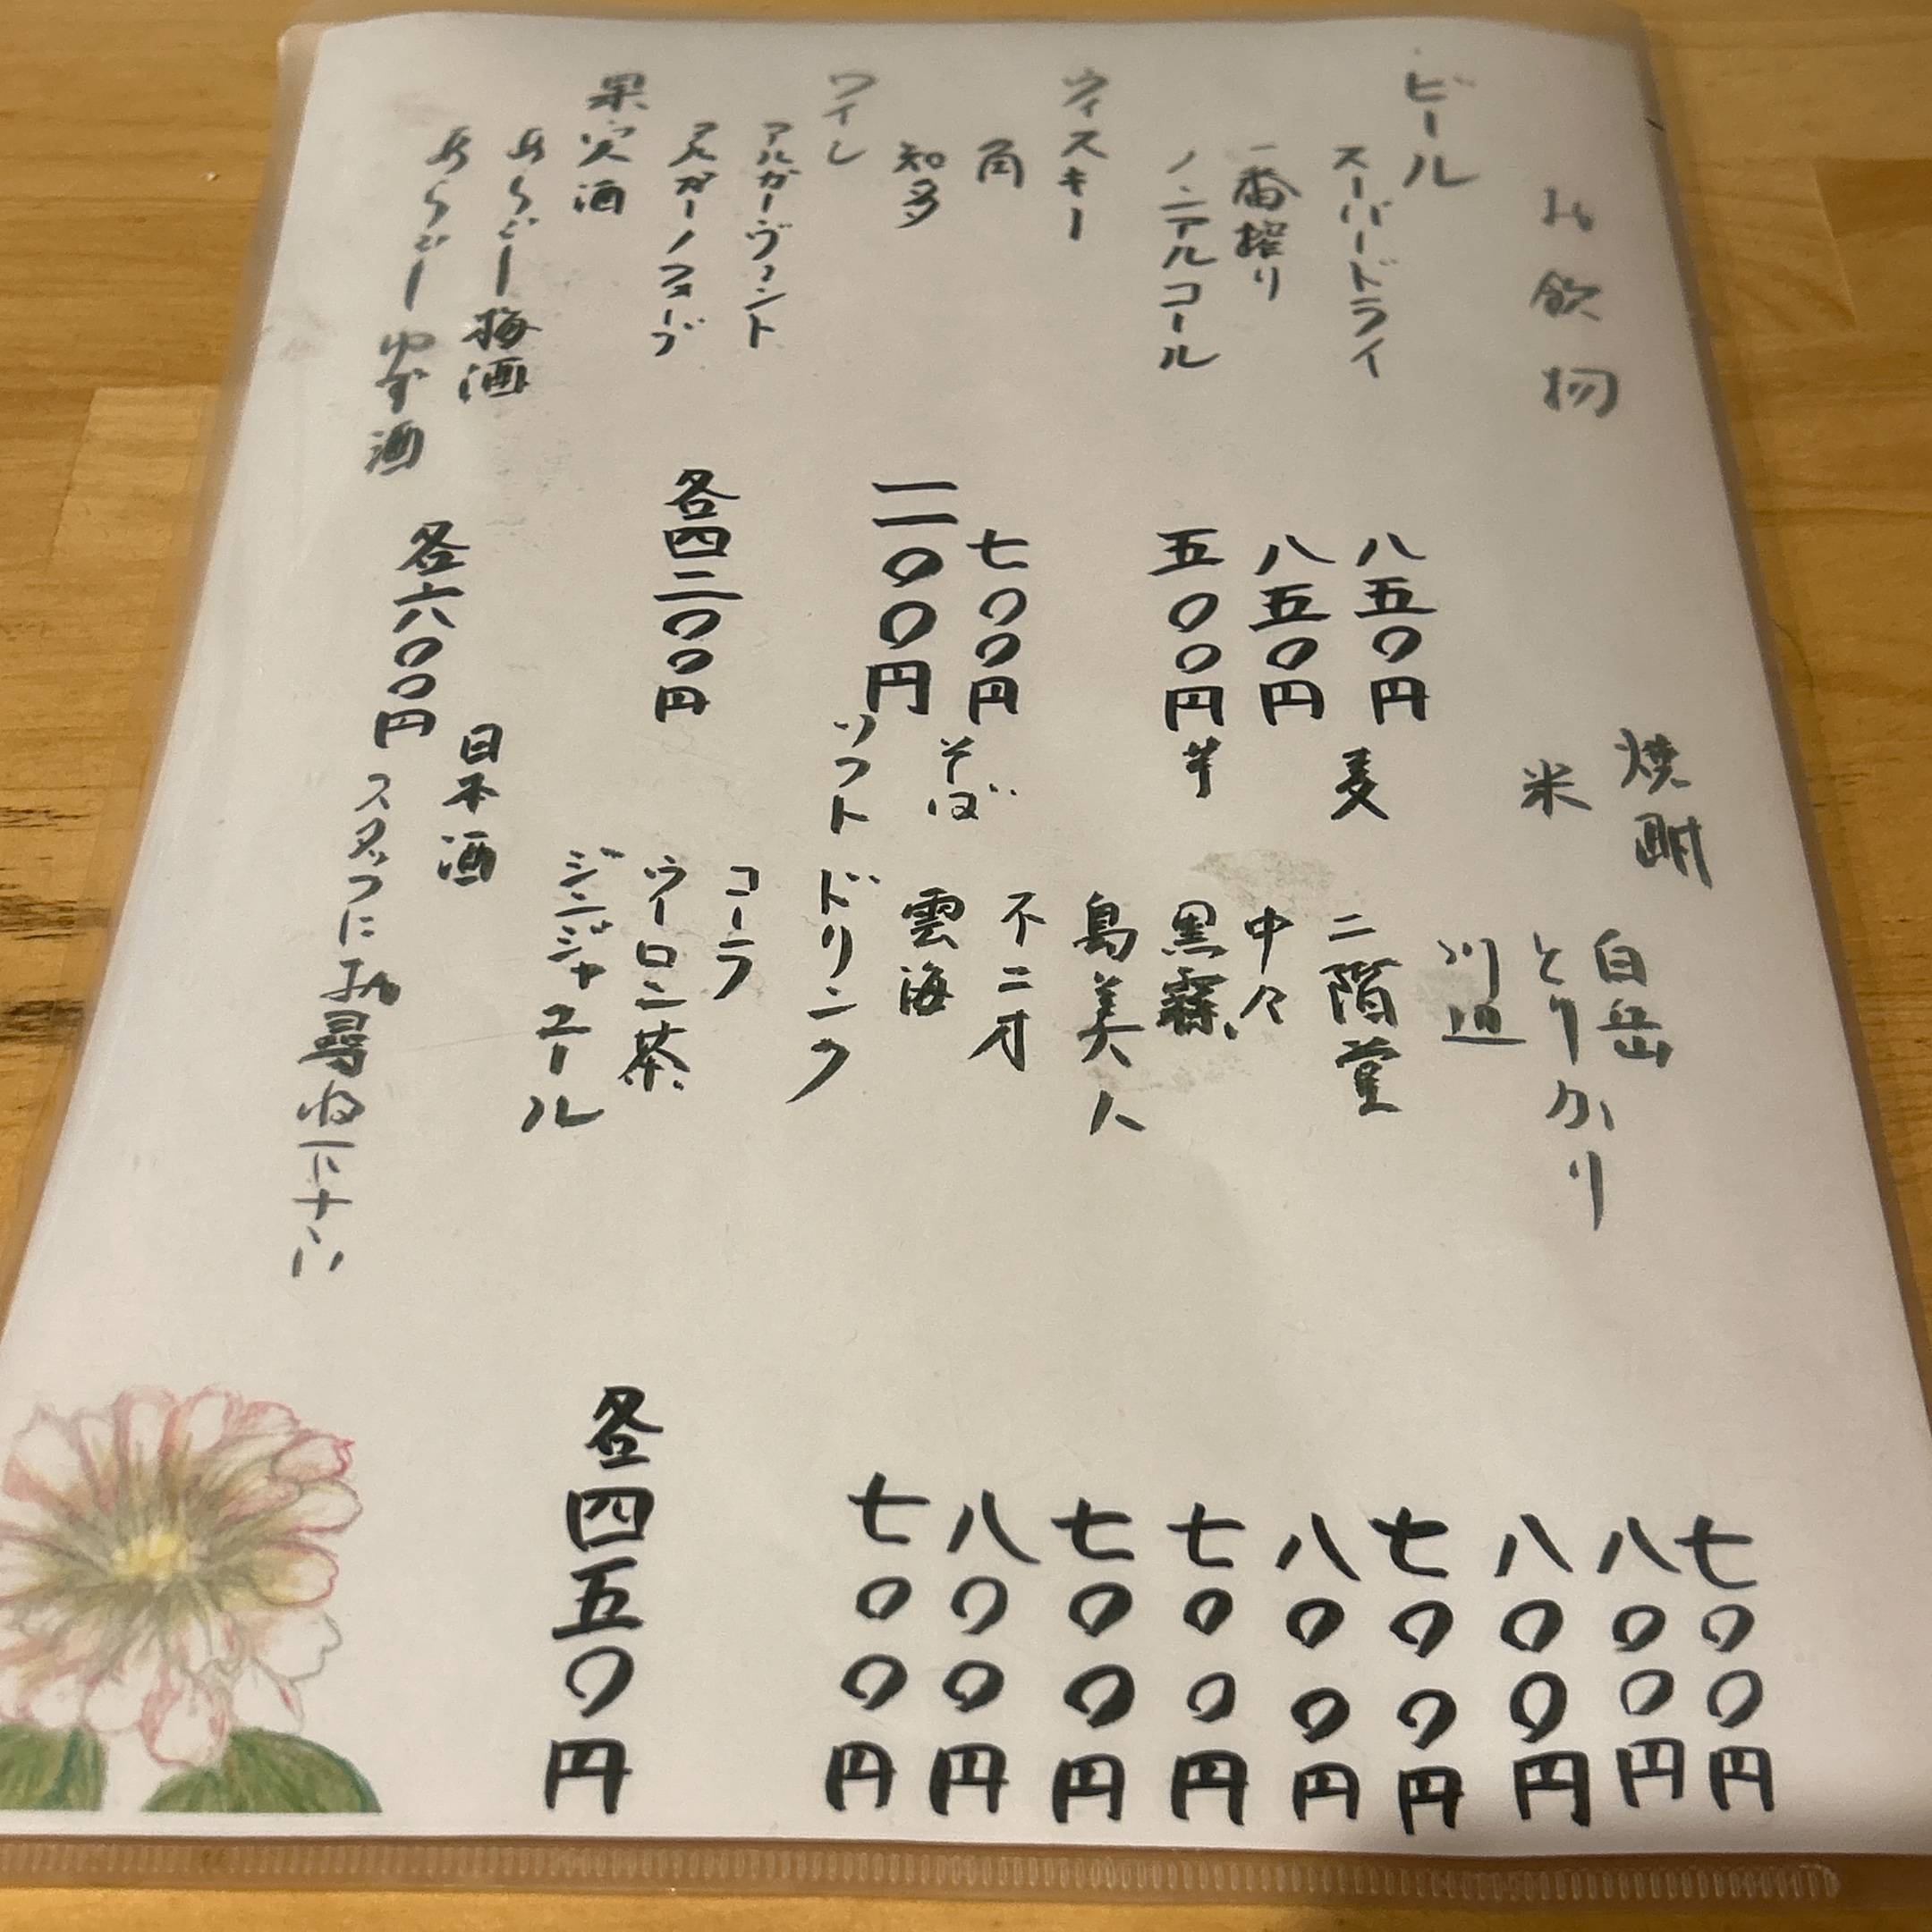 お飲物
ビール
スーパードライ 八五〇円
一番搾り 八五〇円
ノンアルコール 五〇〇円
ウィスキー
角 七〇〇円
知多 一一〇〇円
ワイン
アルガーヴァント
アルガーノフォーゴ
各四二〇〇円
果実酒
あらごし梅酒
あらごしゆず酒
各六〇〇円
焼酎
米
白岳 七〇〇円
とりかり 八〇〇円
川辺 八〇〇円
麦
二階堂 七〇〇円
中々 八〇〇円
芋
黒霧 七〇〇円
島美人 七〇〇円
不二才 八〇〇円
そば
雲海 七〇〇円
ソフトドリンク
コーラ
ウーロン茶
ジンジャエール
各四五〇円
日本酒
スタッフにお尋ね下さい